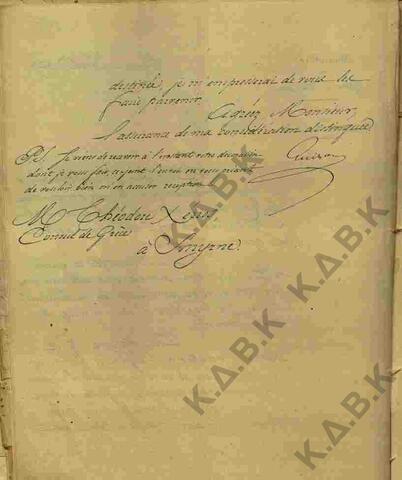 destinée, je m'empresserai de vous les
faire parvenir.
Agréez Monsieur,
l'assurance de ma considération distinguée
PS. Je viens de recevoir à l'instant
dont je vous fais, ci-joint l'envoi en vous priant
de vouloir bien m'en accuser réception
Mr Théodore Xenos
Consul de Grèce
à Smyrne.
Κ.Δ.Β.Κ
Κ.Δ.Β.Κ
Κ.Δ.Β.Κ
Κ.Δ.Β.Κ